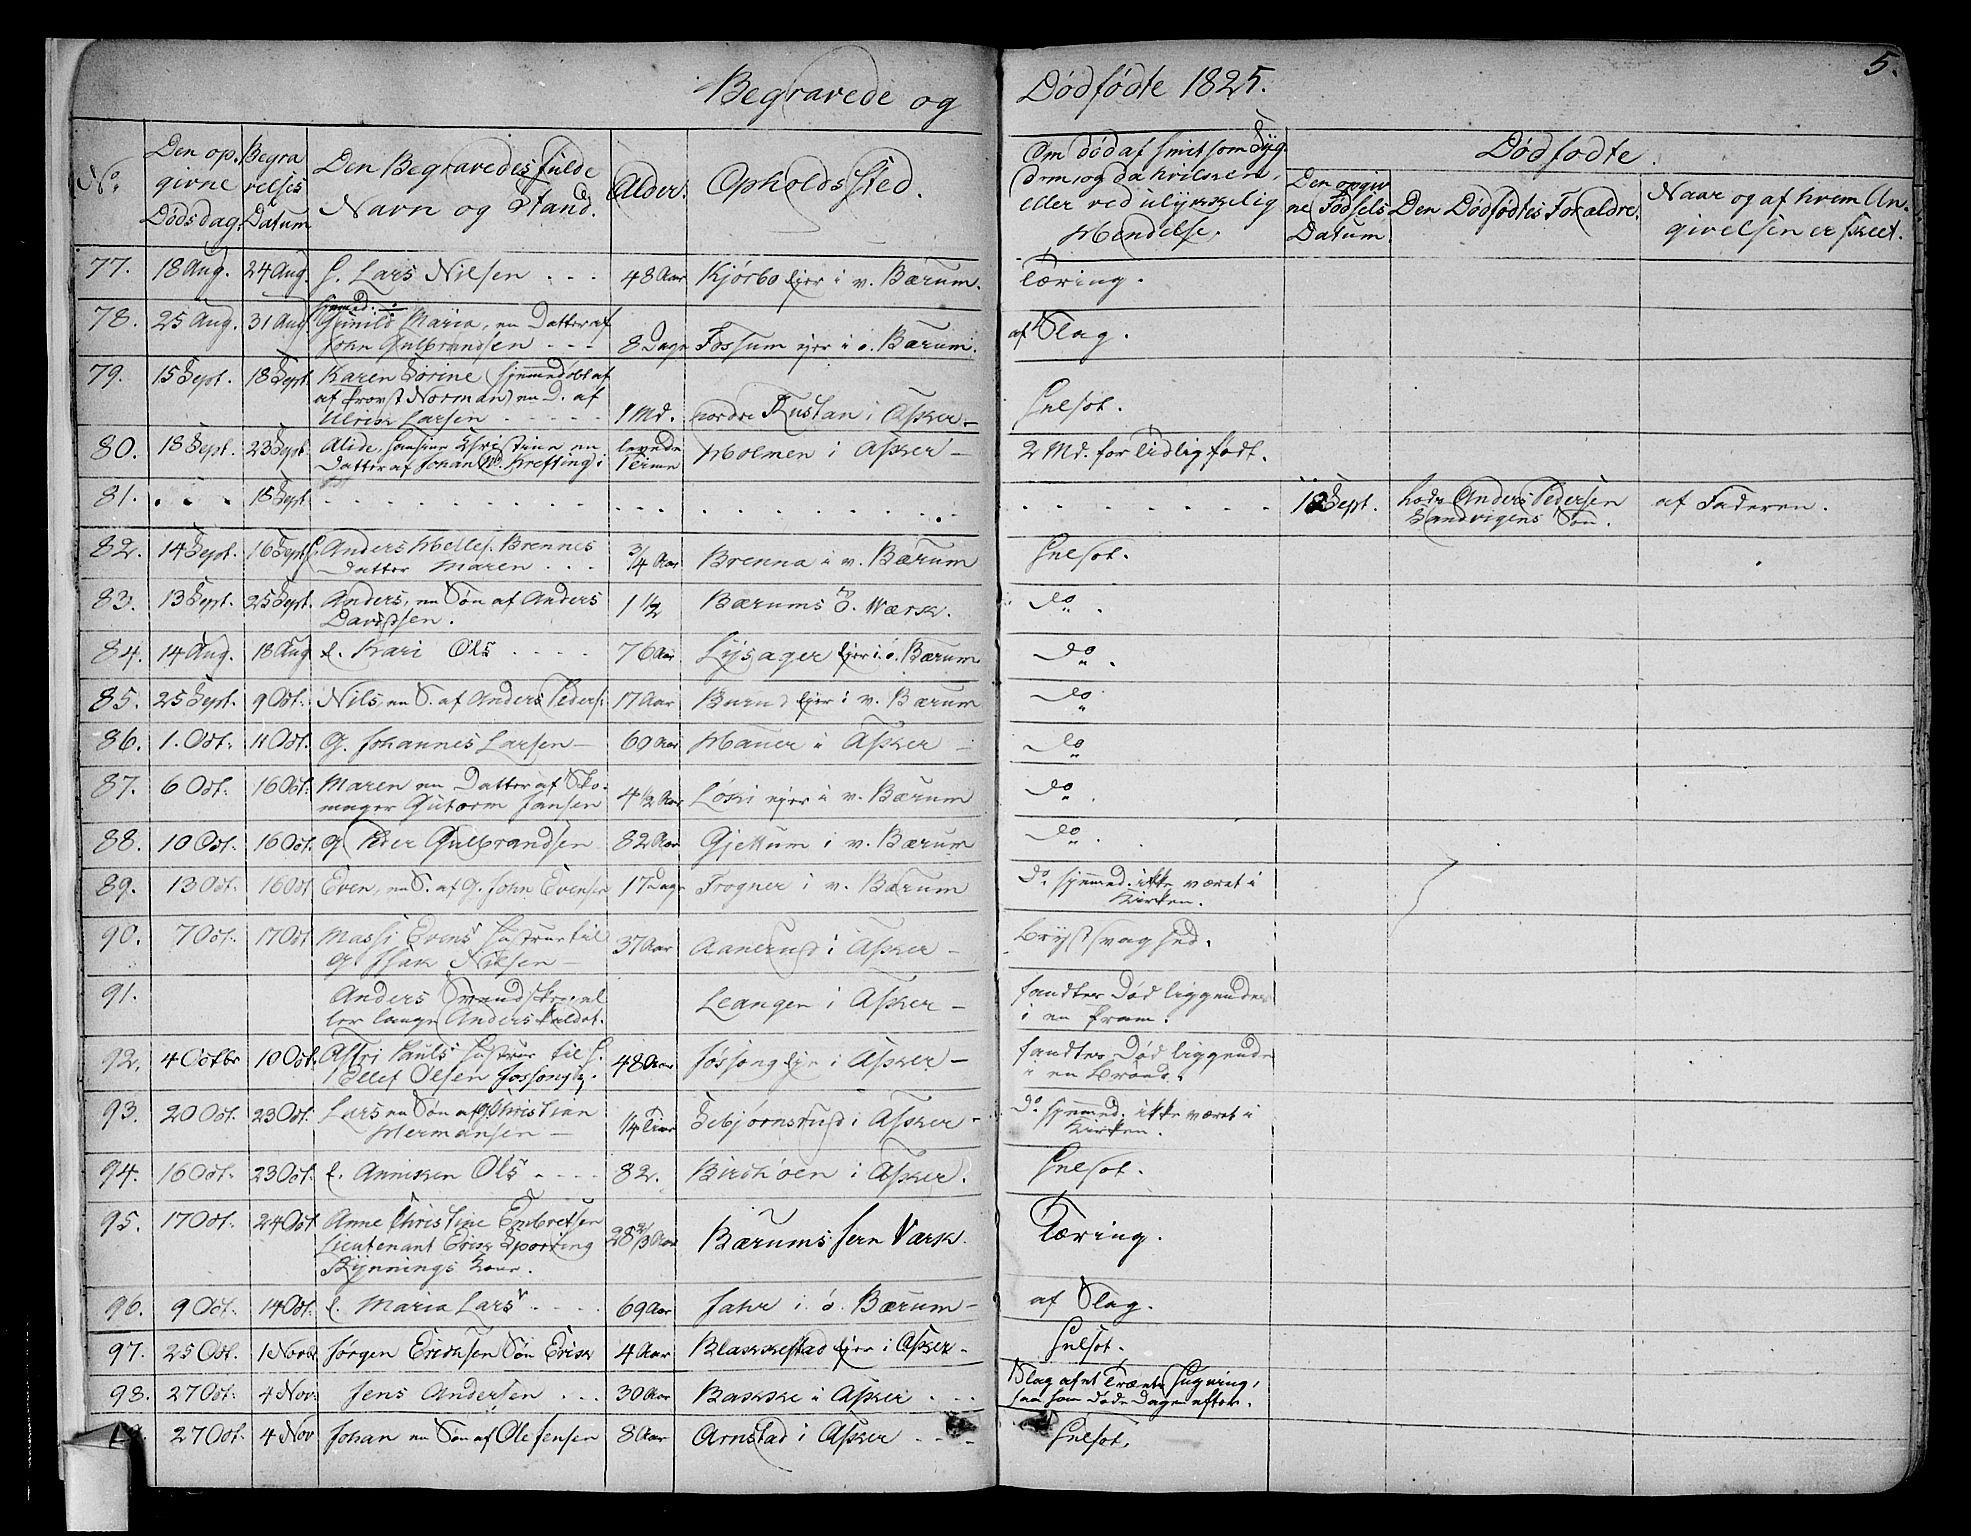 Begravede og Dødfødte 1825.
5.
No.
Den opgivne Dødsdag.
Begravelses Datum
Den Begravedes fulde Navn og Stand.
Alder.
Opholdssted.
Om død af smitsom Sygdom, og da hvilken, eller ved ulykkelig Hendelse.
Dødfødte.
Den opgivne Fødsels Datum.
Den Dødfødtes Forældre.
Naar og af hvem Angivelsen er skeet.
77. 18 Aug. 24 Aug. G. Lars Nilsen . . . 48 Aar Kjørbo Ejer i v. Bærum. Tæring.
78. 25 Aug. 31 Aug hjemmed: Gunild Maria, en Datter af
John Gulbrandsen . . . 8 Dage Fossum ejer i ø. Bærum. af Slag.
79. 15 Sept. 18 Sept. Karen Sørine (hjemmedøbt af
af Provst Norman) en D. af
Ulrick Larsen . . . 1 Md. nordre i Asker - Gulsot.
80. 18 Sept. 23 Sept. Christine en
Datter af Johan Krefting i Holmen i Asker - 2 Md. for tidlig født.
81. . . . 18 Sept. . . . Sept. Anders Pedersen
Sandvigens Søn. af Faderen.
82. 14 Sept. 16 Sept. Anders Brennes
Datter Maren . . . 3/4 Aar Brenna i v. Bærum Gulsot.
83. 13 Sept. 25 Sept. Anders, en Søn af Anders
Davidsen. 1 1/2 Bærums Værk. do.
84. 14 Aug. 18 Aug e. Kari Ols . . . 76 Aar Lysager Ejer i ø. Bærum do.
85. 25 Sept. 9 Oct. Nils, en S. af Anders Peders. 17 Aar Burud Ejer i v. Bærum do
86. 1. Oct. 11 Oct. G. Johannes Larsen - 60 Aar Haner i Asker - do
87. 6 Oct. 16 Oct. Maren en Datter af Sko-
mager Gutorm Jansen 4 1/2 Aar Løki ejer i v. Bærum do.
88. 10 Oct. 16 Oct. G Peder Gulbrandsen 82 Aar Gjettum i v. Bærum do.
89. 13 Oct. 16 Oct Even, en S. af G. John Evensen 17 Dage Frogner i v. Bærum do. hjemmed. ikke været i
Kirken.
90. 7 Oct. 17 Oct Massi Evens Hustrue til
G Isak Nilsen - 37 Aar Aanerud i Asker - Brystsvaghed.
91. Anders
ler lange Anders kaldet. Leangen i Asker - fandtes Død liggende
i en Pram.
92. 4 Octbr 10 Oct. Astri Pauls Hustrue til G.
Ellef Olsen 48 Aar i Asker - fandtes Død liggende
i en Brønd.
93. 20 Oct. 23 Oct. Lars en Søn af G. Christian
Hermansen - 1/4 i Asker - do. hjemmed. ikke været i
Kirken.
94. 16 Oct. 23 Oct. e. Anniken Ols . . . 82. i Asker. Gulsot.
95. 17 Oct. 24 Oct Anne Christine Embretsen
Lieutenant Erik Sporring
Kynnings Kone. 28 2/3 Aar Bærums Jern Værk. Tæring.
96. 9 Oct. 14 Oct. e. Maria Lars . . . 69 Aar Jahr i ø. Bærum - af Slag.
97. 25 Oct. 1 Novbr Jørgen Eriksen Søn Erik 4 Aar Blakkestad Ejer i Asker - Gulsot.
98. 27 Oct. 4 Nov. Jens Andersen . . . 30 Aar Bakke i Asker . . . Slag af et Træ
døde Dagen efter.
27 Oct. 4 Nov Johan en Søn af Ole Jensen 8 Aar Arnstad i Asker . . . Gulsot.